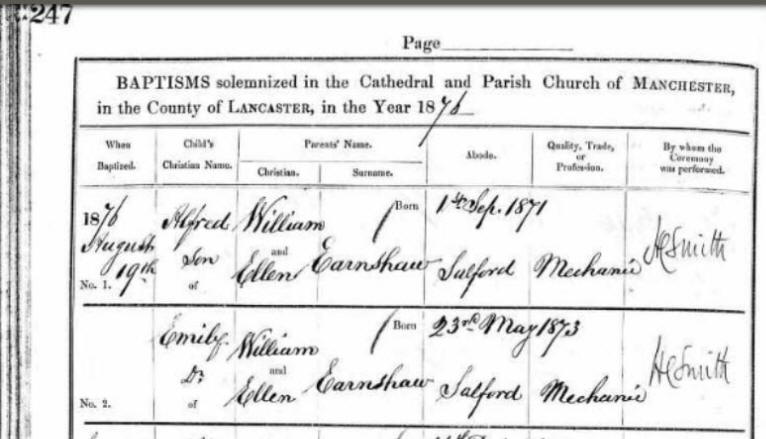 247
Page
BAPTISMS solemnized in the Cathedral and Parish Church of MANCHESTER,
in the County of LANCASTER, in the Year 1876
When Baptized.
Child's Christian Name.
Parents' Name.
Christian.
Surname.
Abode.
Quality, Trade, or Profession.
By whom the Ceremony was performed.
1876 August 19th
No. 1.
Alfred Son of
William and Ellen
Earnshaw
Born 1st Sep. 1871
Salford
Mechanic
HCSmith
No. 2.
Emily Dr of
William and Ellen
Earnshaw
Born 23rd May 1873
Salford
Mechanic
HCSmith